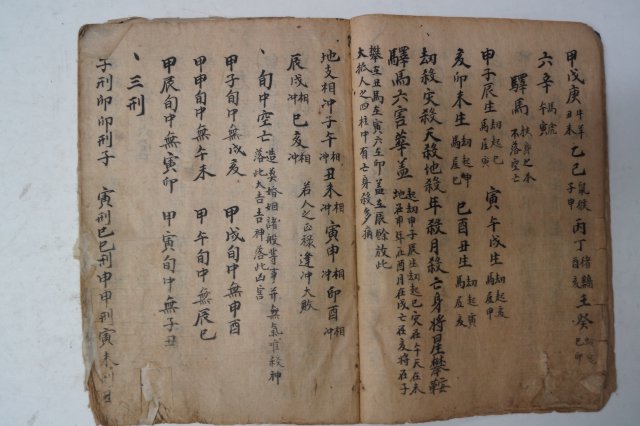 甲戊庚 牛羊 丑未 乙己 鼠猴 子申 丙丁 猪鷄 酉亥 壬癸 巳卯
六辛 馬虎 午寅
驛馬 扶身之本 不落空亡
申子辰生 劫起巳 馬居寅 寅午戌生 劫起亥 馬居申
亥卯未生 劫起申 馬居巳 巳酉丑生 劫起寅 馬居亥
劫殺灾殺天殺地殺年殺月殺亡身將星攀鞍
驛馬六害華盖 起劫申子辰生劫起巳灾在午天在未 地在申年在酉月在戌亡在亥將在子
攀在丑馬在寅六在卯盖在辰餘放此
大抵人之四柱中有亡身殺多病
地支相冲子午相冲丑未相冲寅申相冲卯酉相冲
辰戌相冲巳亥相冲 若人之正禄逢冲大敗
旬中空亡 造葬婚姻諸般等事并無氣唯殺神 落此大吉吉神落此凶害
甲子旬中無戌亥 甲戌旬中無申酉
甲申旬中無午未 甲午旬中無辰巳
甲辰旬中無寅卯 甲寅旬中無子丑
三刑
子刑卯卯刑子 寅刑巳巳刑申申刑寅未